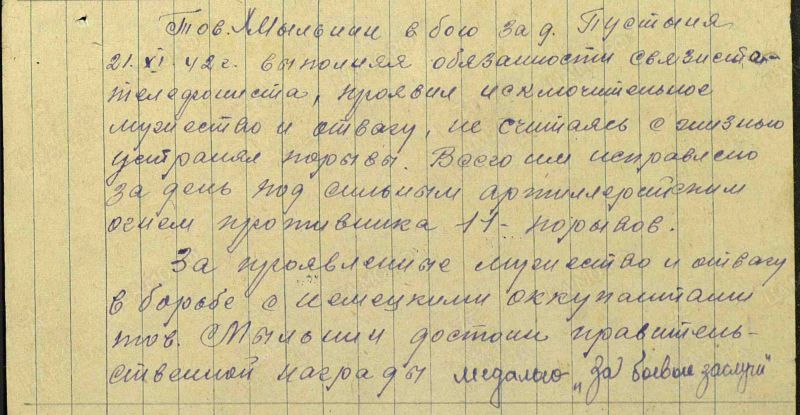 Тов. Мыльнин в бою за д. Пустыня
21.XI.42г. выполняя обязанности связиста-
телефониста, проявил исключительное
мужество и отвагу, не считаясь с жизнью
устранял порывы. Всего им исправлено
за день под сильным артиллерийским
огнем противника 11-порывов.
За проявленные мужество и отвагу
в борьбе с немецкими оккупантами
тов. Мыльнин достоин правитель-
ственной награды медалью „За боевые заслуги"